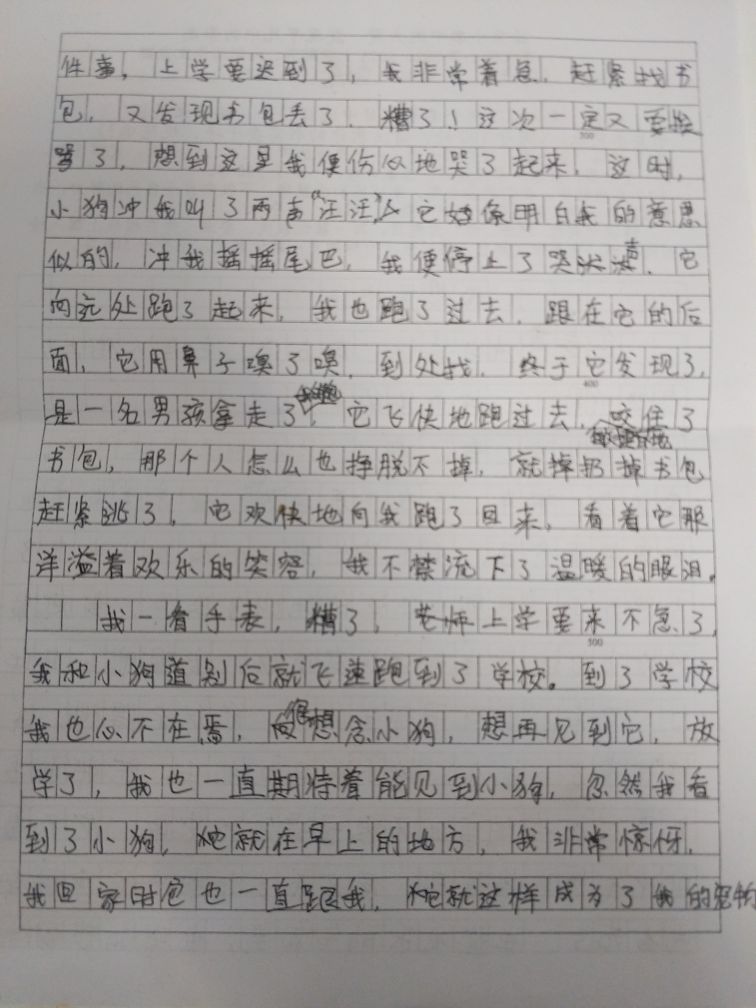 件事，上学要迟到了，我非常着急，赶紧找书
包，又发现书包丢了，糟了！这次一定又要
300
骂了，想到这里我便伤心地哭了起来，这时，
小狗冲我叫了两声“汪汪”，它好像明白我的意思
似的，冲我摇摇尾巴，我便停止了哭声，它
向远处跑了起来，我也跑了过去，跟在它的后
面，它用鼻子嗅了嗅，到处找，终于它发现了，
400
是一名男孩拿走了，它飞快地跑过去，咬住了
书包，那个人怎么也挣脱不掉，就掉扔掉书包
赶紧逃了，它欢快地向我跑了回来，看着它那
洋溢着欢乐的笑容，我不禁流下了温暖的眼泪。
我一看手表，糟了，上学要来不急了，
500
我和小狗道别后就飞速跑到了学校。到了学校
我也心不在焉，很想念小狗，想再见到它，放
学了，我也一直期待着能见到小狗，忽然我看
到了小狗，它就在早上的地方，我非常惊讶，
我回家时它也一直跟我，它就这样成为了我的宠物